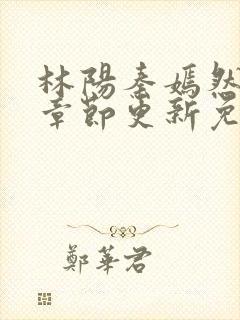 林陽秦嫣然
章節更新免
鄭華君